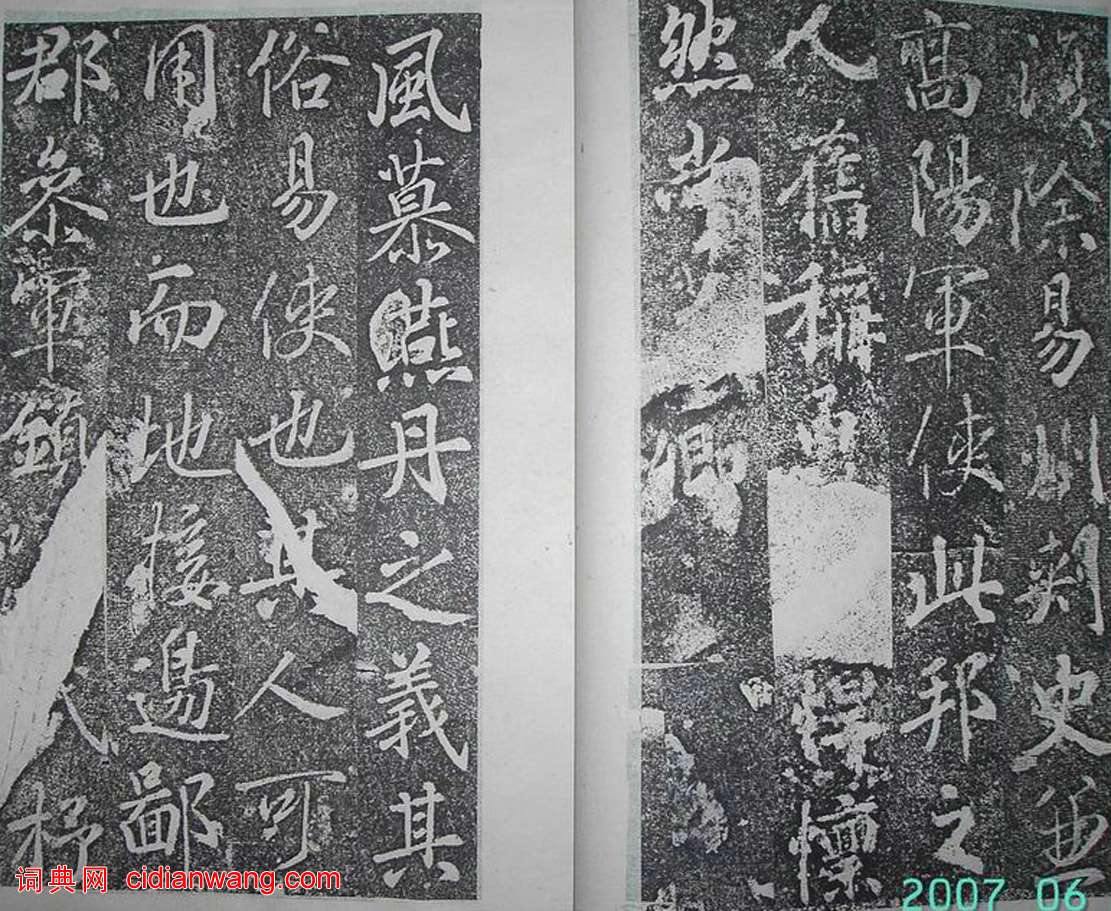 復除易州刺史兼
高陽軍使此邦之
人舊稱勇悍懍
然尚卿
風慕燕丹之義其
俗易使也其人可
用也而地接邊鄙
郡參軍鎮式杼
词典网 cidianwang.com
2007 06